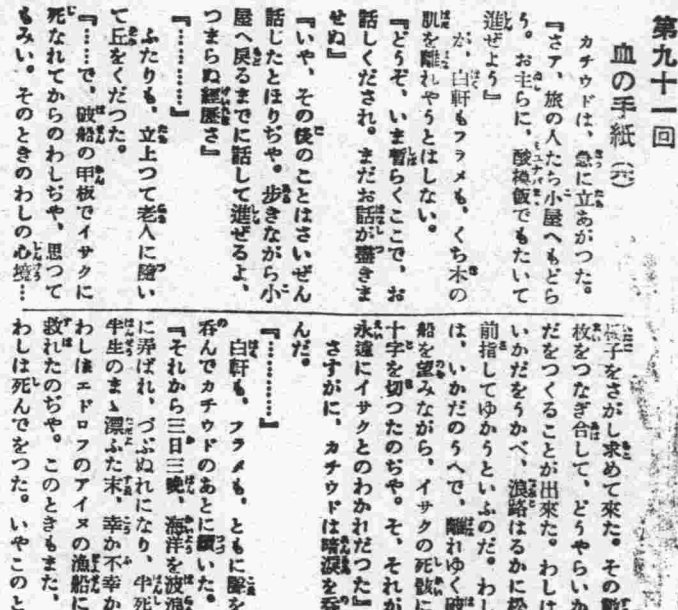 第九十一回
血の手紙（六）
カチウドは、急に立あがつた。
『さア、旅の人たち小屋へもどら
う。お主らに、酸模飯でもたいて
進ぜよう』
が、白軒もフラメも、くち木の
肌を離れやうとはしない。
『どうぞ、いま暫らくここで、お
話しくだされ。まだお話が盡きま
せぬ』
『いや、その後のことはさいぜん
話じたとほりぢや。歩きながら小
屋へ戻るまでに話して進ぜるよ、
つまらぬ經歴さ』
『…………』
ふたりも、立上つて老人に隨い
て丘をくだつた。
『……で、破船の甲板でイサクに
死なれてからのわしぢや、思つて
もみい。そのときのわしの心境…
子をさがし求めて來た。その
枚をつなぎ合して、どうやらいか
だをつくることが出來た。わしは
いかだをうかべ、浪路はるかに
前指してゆかうといふのだ。わ
は、いかだのうへで、離れゆく破
船を望みながら、イサクの死骸に
十字を切つたのぢや。そ、それが
永遠にイサクとのわかれだつた』
さすがに、カチウドは暗涙を呑
んだ。
『…………』
白軒も、フラメも、ともに聲を
呑んでカチウドのあとに續いた。
『それから三日三晩、海洋を波浪
に弄ばれ、づぶぬれになり、半死
半生のまゝ漂ふた末、幸か不幸か
わしはエドロフのアイヌの漁船に
救れたのぢや。このときもまた、
わしは死んでをつた。いやこのと